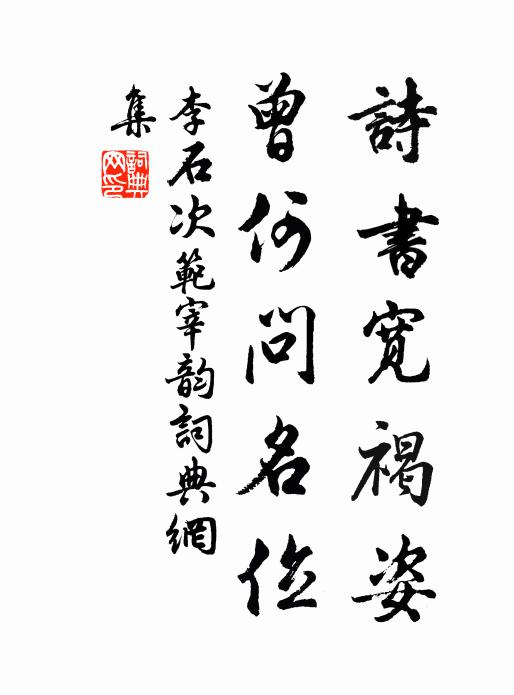 詩書寬褐姿
曾何問名位
李石次範宰韵詞典網
集
詞典网印